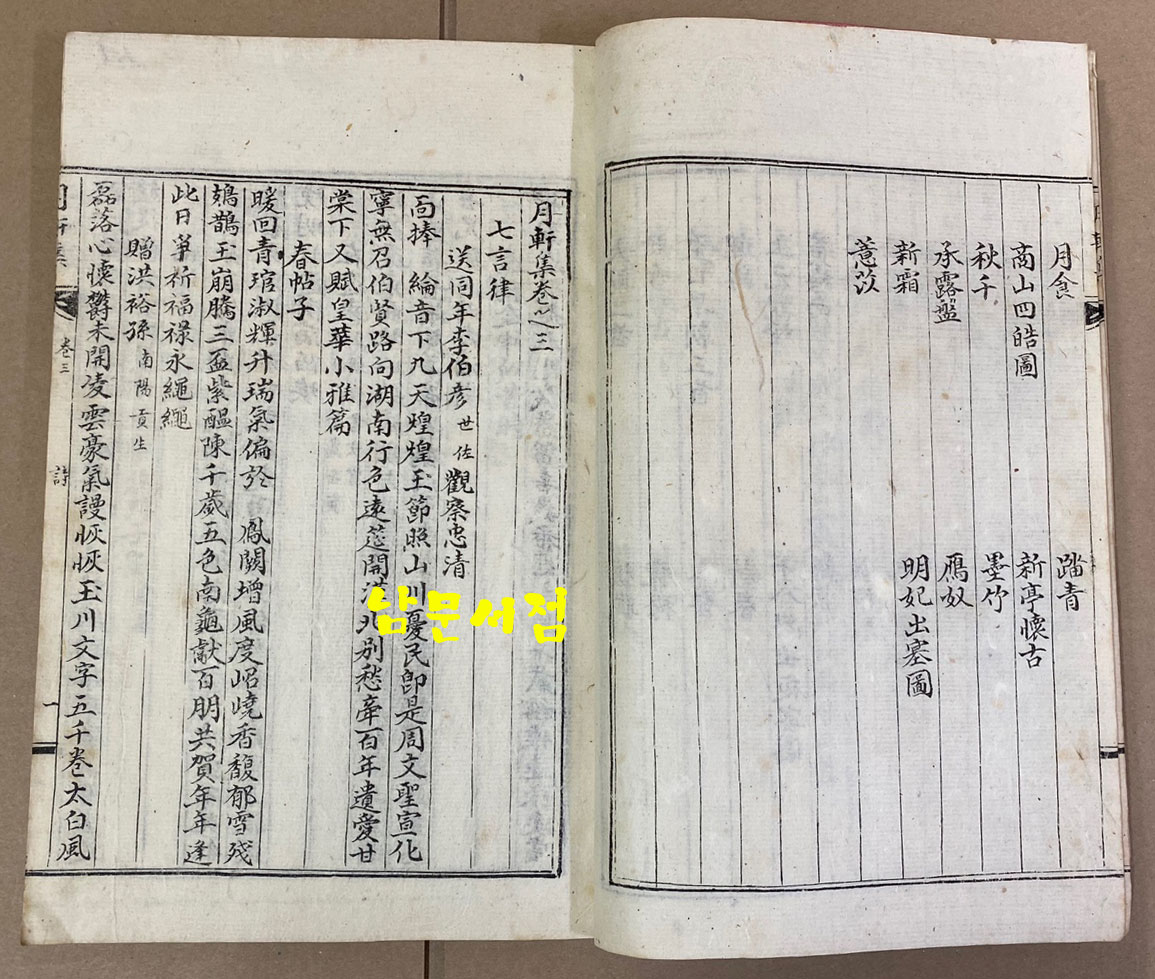 月食
踏青
商山四皓圖
新亭懷古
秋千
墨竹
承露盤
鴈奴
新霜
明妃出塞圖
薏苡
月軒集卷之三
七言律
送同年李伯彦 世佐 觀察忠淸
面捧 綸音下九天煌煌玉節照山川憂民卽是周文聖宣化
寧無召伯賢路向湖南行色遠筵開漢北別愁牽百年遺愛甘
棠下又賦皇華小雅篇
春帖子
暖回青琯淑輝升瑞氣偏於 鳳闕增風度岧嶢香馥郁雪殘
鳷鵲玉崩騰三盃紫醞陳千歲五色南龜獻百朋共賀年年逢
此日爭祈福祿永繩繩
贈洪裕孫 南陽貢生
磊落心懷鬱未開凌雲豪氣謾恢恢玉川文字五千卷太白風
卷三
詩
一
남문서점